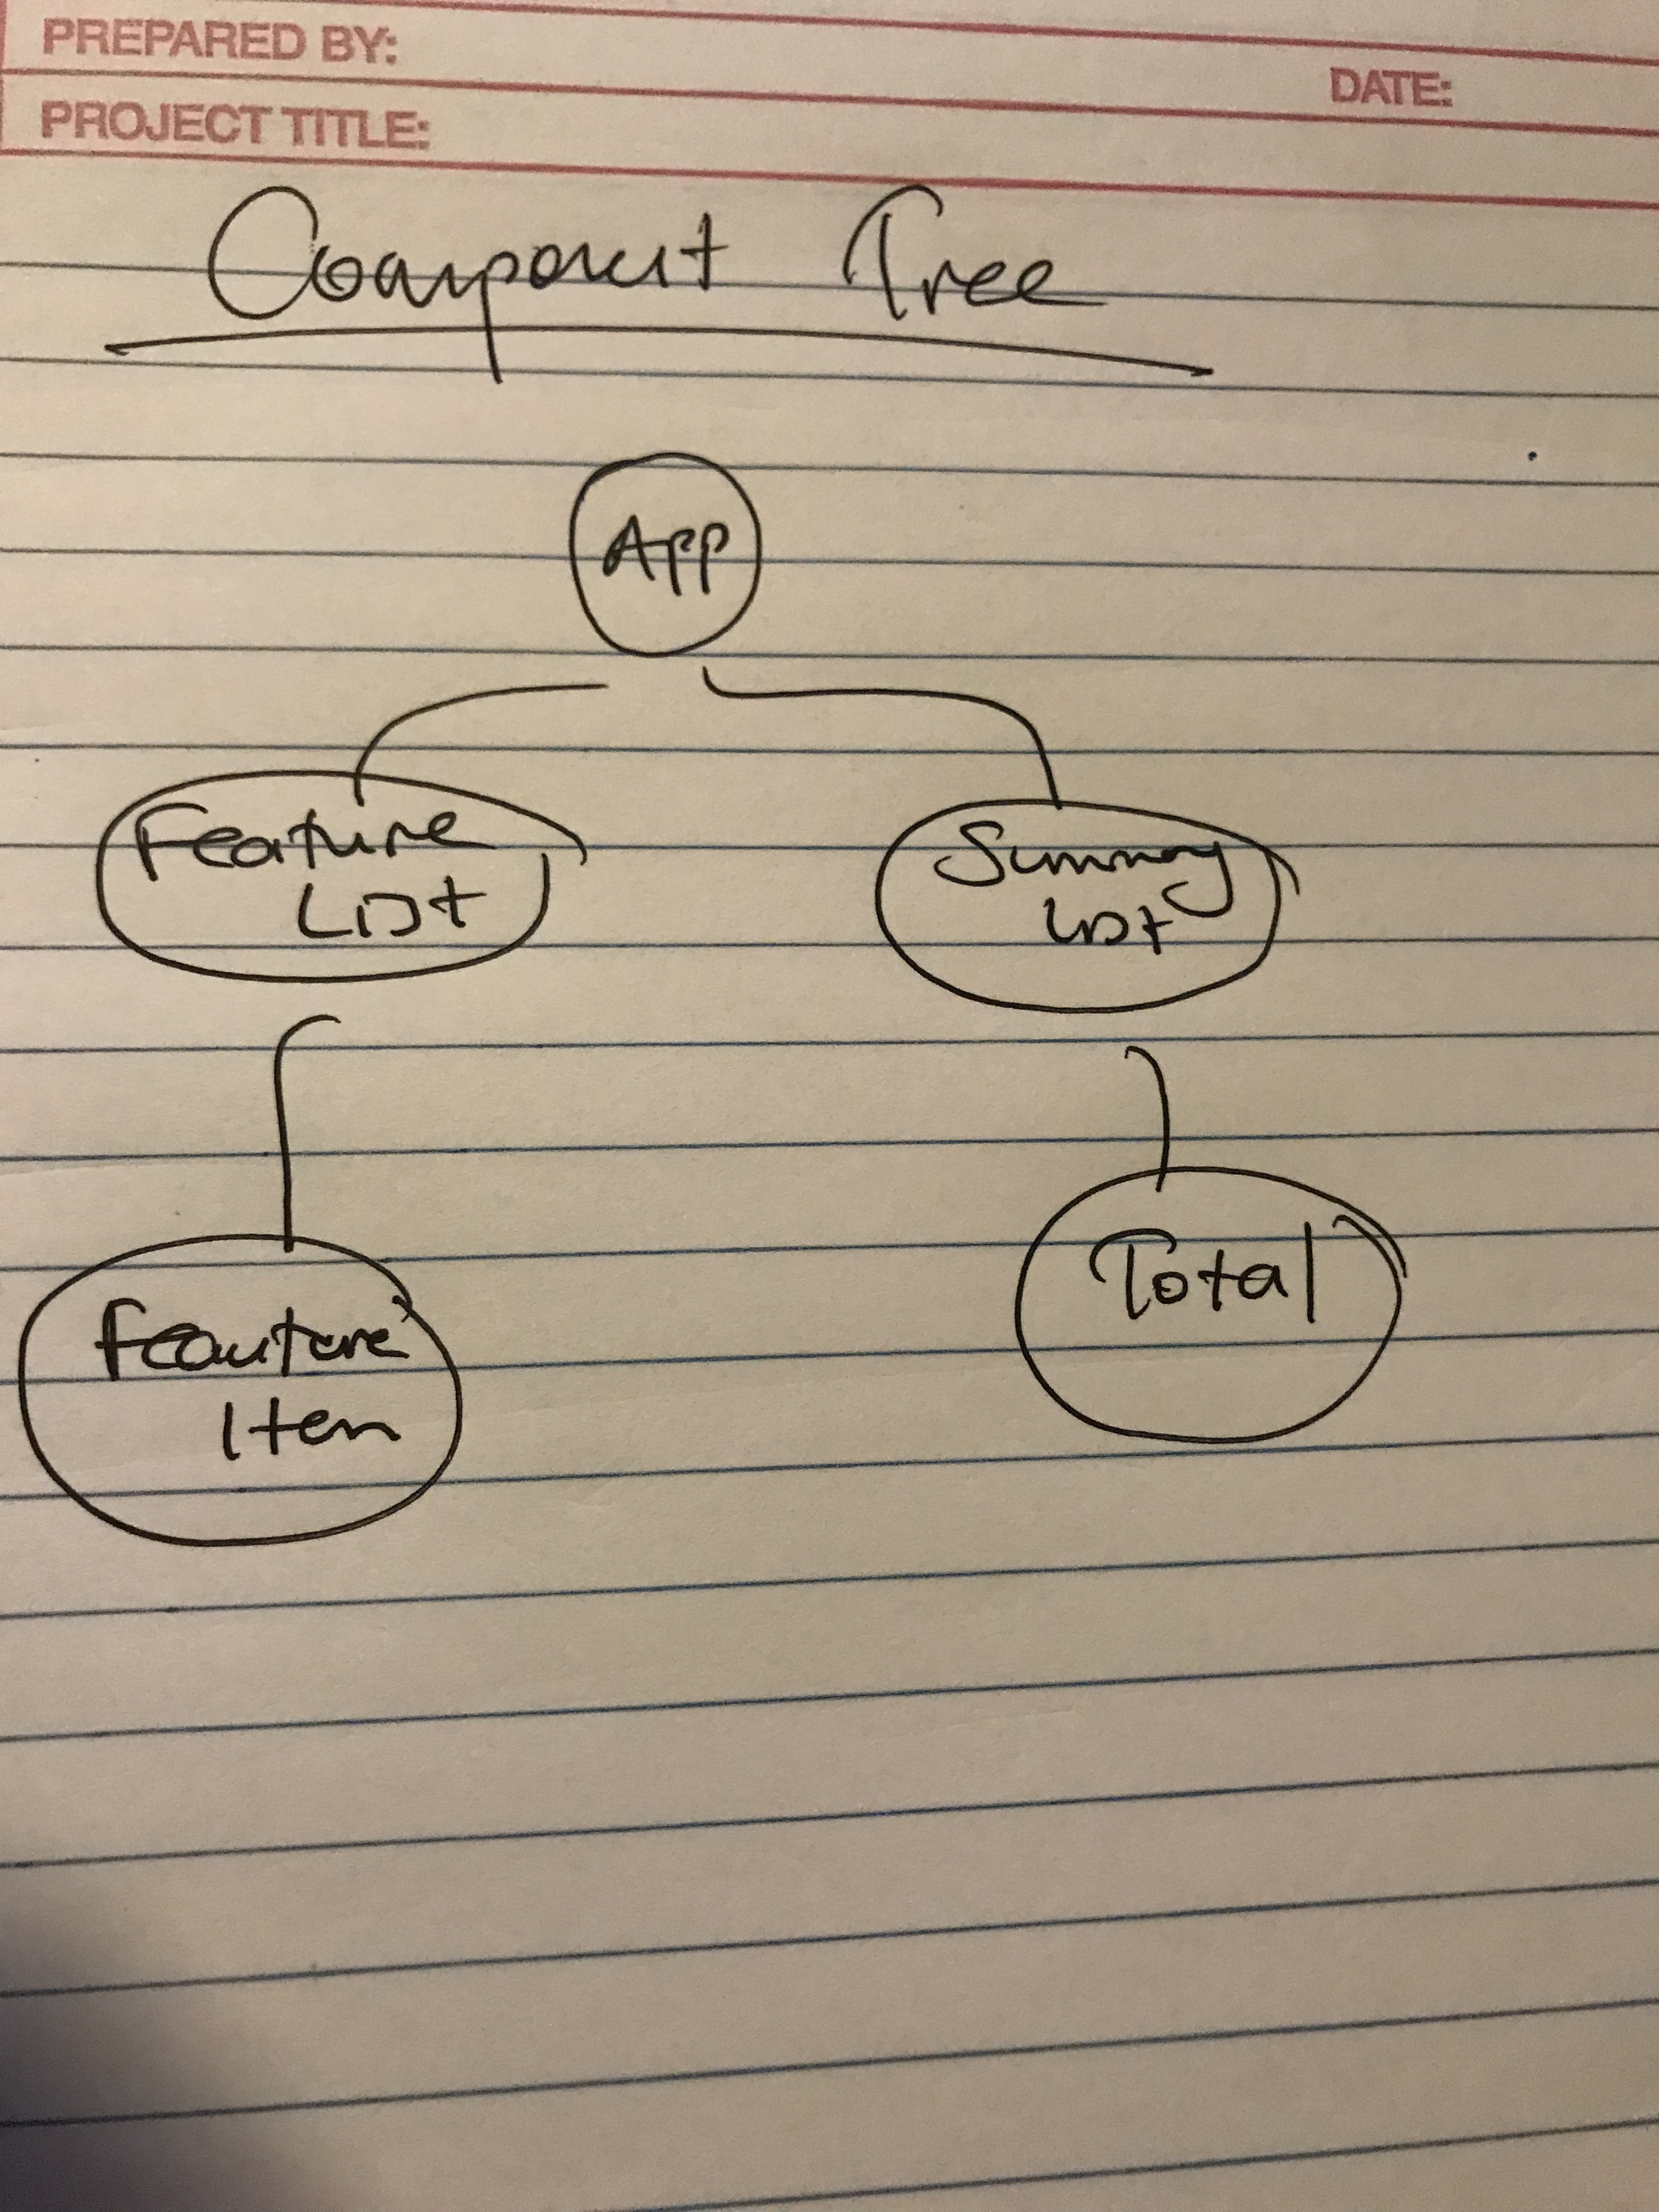 PREPARED BY:
DATE:
PROJECT TITLE:
Component Tree
App
Feature
List
Summary
List
Feauture
Item
Total